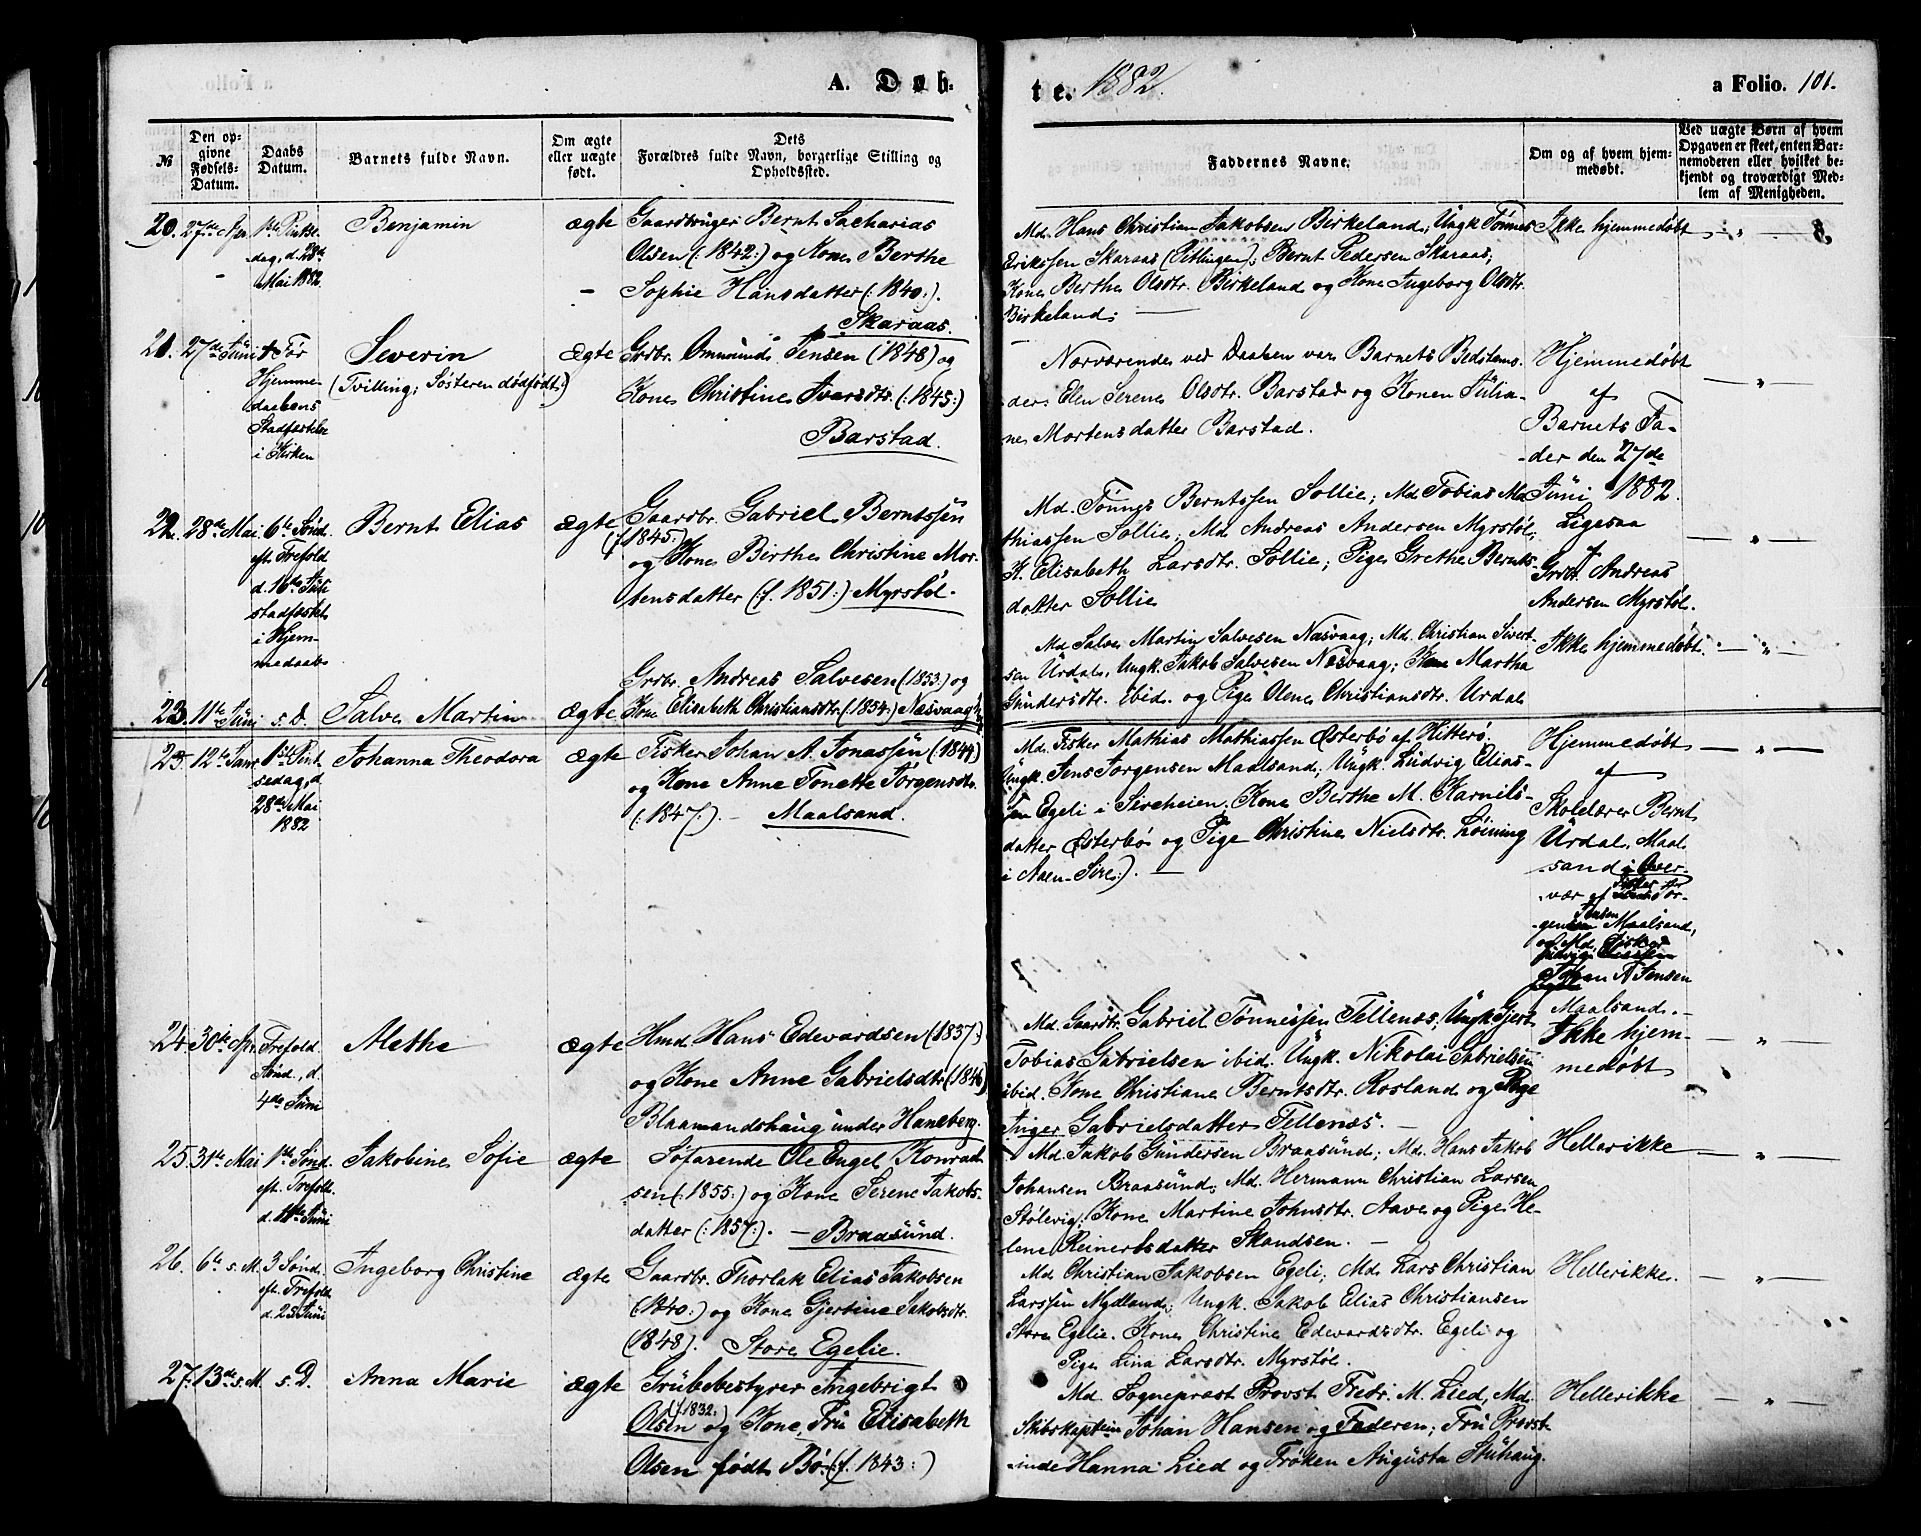 A. Døb-
te. 1882.
a Folio. 101.
№
Den op-
givne
Fødsels-
Datum.
Daabs
Datum.
Barnets fulde Navn.
Om ægte
eller uægte
født.
Dets
Forældres fulde Navn, borgerlige Stilling og
Opholdssted.
Faddernes Navne.
Om og af hvem hjem-
medøbt.
Ved uægte Børn af hvem
Opgaven er skeet, enten Bar-
nemoderen eller hvilket be-
kjendt og troværdigt Med-
lem af Menigheden.
20. 27de Apr. 1ste Pintse
dag, d. 28de
Mai 1882.
Benjamin
ægte
Gaardbruger Bernt Sacharias
Olsen (: 1842:) og Kone Berthe
Sophie Hansdatter (: 1840:).
Skaraas.
Md. Hans Christian Jakobsen Birkeland; Ungk Tønnes
Erikssen Skaraas (Vitlingen); Bernt Pedersen Skaraas;
Kone Berthe Olsdtr. Birkeland og Kone Ingeborg Olsdtr.
Birkeland;
Ikke hjemmedøbt
21. 27de Juni
Før
Hjemme-
daabens
Stadfæstelse
i Kirken
Severin
(Tvilling; Søsteren dødfødt:)
ægte
Grdbr. Omund Jensen (1848) og
Kone Christine Ivarsdtr. (:1845:)
Barstad.
Nærværende ved Daaben var Barnets Bedstemo-
der: Elen Serene Olsdtr. Barstad og Konen Julia-
ne Mortensdatter Barstad.
Hjemmedøbt
af
Barnets Fa-
der den 27de
Juni 1882.
22. 28de Mai 6te Sønd.
eft. Trefold
d. 16de Juli
stadfæstet
i Hjem-
medaab
Bernt Elias
ægte
Gaardbr. Gabriel Berntssøn
(f. 1845:)
og Kone Birthe Christine Mor-
tensdatter (:f. 1851:) Myrstøl.
Md. Tønnes Berntssen Sollie; Md Tobias Ma-
thiassen Sollie; Md Andreas Andersen Myrstøl;
K. Elisabeth Larsdtr. Sollie; Pige Grethe Bernts-
datter Sollie
Ligesaa
af
Grdbr. Andreas
Andersen Myrstøl.
23. 11te Juni s. D. Salve Martin
ægte
Grdbr. Andreas Salvesen (1853:) og
Kone Elisabeth Christiansdtr. (:1854:) Næsvaag
Md Salve Martin Salvesen Næsvaag; Md. Christian Sivert-
sen Urdal, Ungk. Jakob Salvesen Næsvaag; Kone Martha
Gundersdtr. ibid. og Pige Olene Christiansdtr. Urdal
Ikke hjemmedøbt.
23. 12te Janr. 1ste Pint-
sedag, d.
28de Mai
1882
Johanna Theodora
ægte
Fisker Johan A. Jonassøn (1844)
og Kone Anne Tonette Jørgensdtr.
(:1847:). — Maalsand.
Md. Fisker Mathias Mathiassen Østerbø af Hitterø.
Ungk. Jens Jørgensen Maalsand; Ungk. Ludvig Elias-
sen Egeli i Sireheien; Kone Berthe M. Karnils-
datter Østerbø og Pige Christine Nielsdtr. Løining
i Aaen-Sire:).
Hjemmedøbt
af
Skolelærer Bernt
Urdal, Maal-
sand i Over-
vær af Fisker
Maalsand,
og Md. Fisker
Johan A Jensen
Maalsand.
24. 30te Apr. Trefold.
Sønd., d.
4de Juni
Alethe
ægte
Hmd. Hans Edevardsen (1837:)
og Kone Anne Gabrielsdtr. (1846)
Blaamandshaug under Haneberg.
Md. Gaardbr. Gabriel Tønnessen Tellenes; Ungk. Gjert
Tobias Gabrielsen ibid. Ungk. Nikolai Gabrielsen
ibid. Kone Christiane Berntsdtr. Rosland og Pige
Inger Gabrielsdatter Tellenæs.
Ikke hjem-
medøbt
25. 31te Mai 1ste Sønd.
eft. Trefold.
d. 11te Juni
Jakobine Sofie
ægte
Søfarende Ole Engel Konrad-
sen (:1855:) og Kone Serene Jakobs-
datter (:1857:). — Braasund.
Md Jakob Gundersen Braasund; Md. Hans Jakob
Johansen Braasund; Md. Hermann Christian Larsen
Stølevig; Kone Martine Johnsdtr. Aave og Pige He-
lene Reinertsdatter Skandsen.
Hellerikke
26. 6te s. M. 3 Sønd.
eft. Trefold.
d. 25 Juni
Ingeborg Christine
ægte
Gaardbr. Thorlak Elias Jakobsen
(1840:) og Kone Gjertine Jakobsdtr.
(1848). Store Egelie.
Md Christian Jakobsen Egeli; Md. Lars Christian
Larssen Mydland; Ungk. Jakob Elias Christiansen
Store Egelie. Kone Christine Edevardsdtr. Egeli og
Pige Lina Larsdtr. Myrstøl.
Hellerikke.
27. 13de s. M. s. D.
Anna Marie
ægte
Grubebestyrer Ingebrigt
Olsen (f. 1832:) og Kone, Fru Elisabeth
Olsen født Bø. (f. 1843:)
Md. Sogneprest Provst Fredr. M. Lied, Md.
Skibskaptein Johan Hansen og Faderen; Fru Provst-
inde Hanna Lied og Frøken Augusta Stuhaug.
Hellerikke